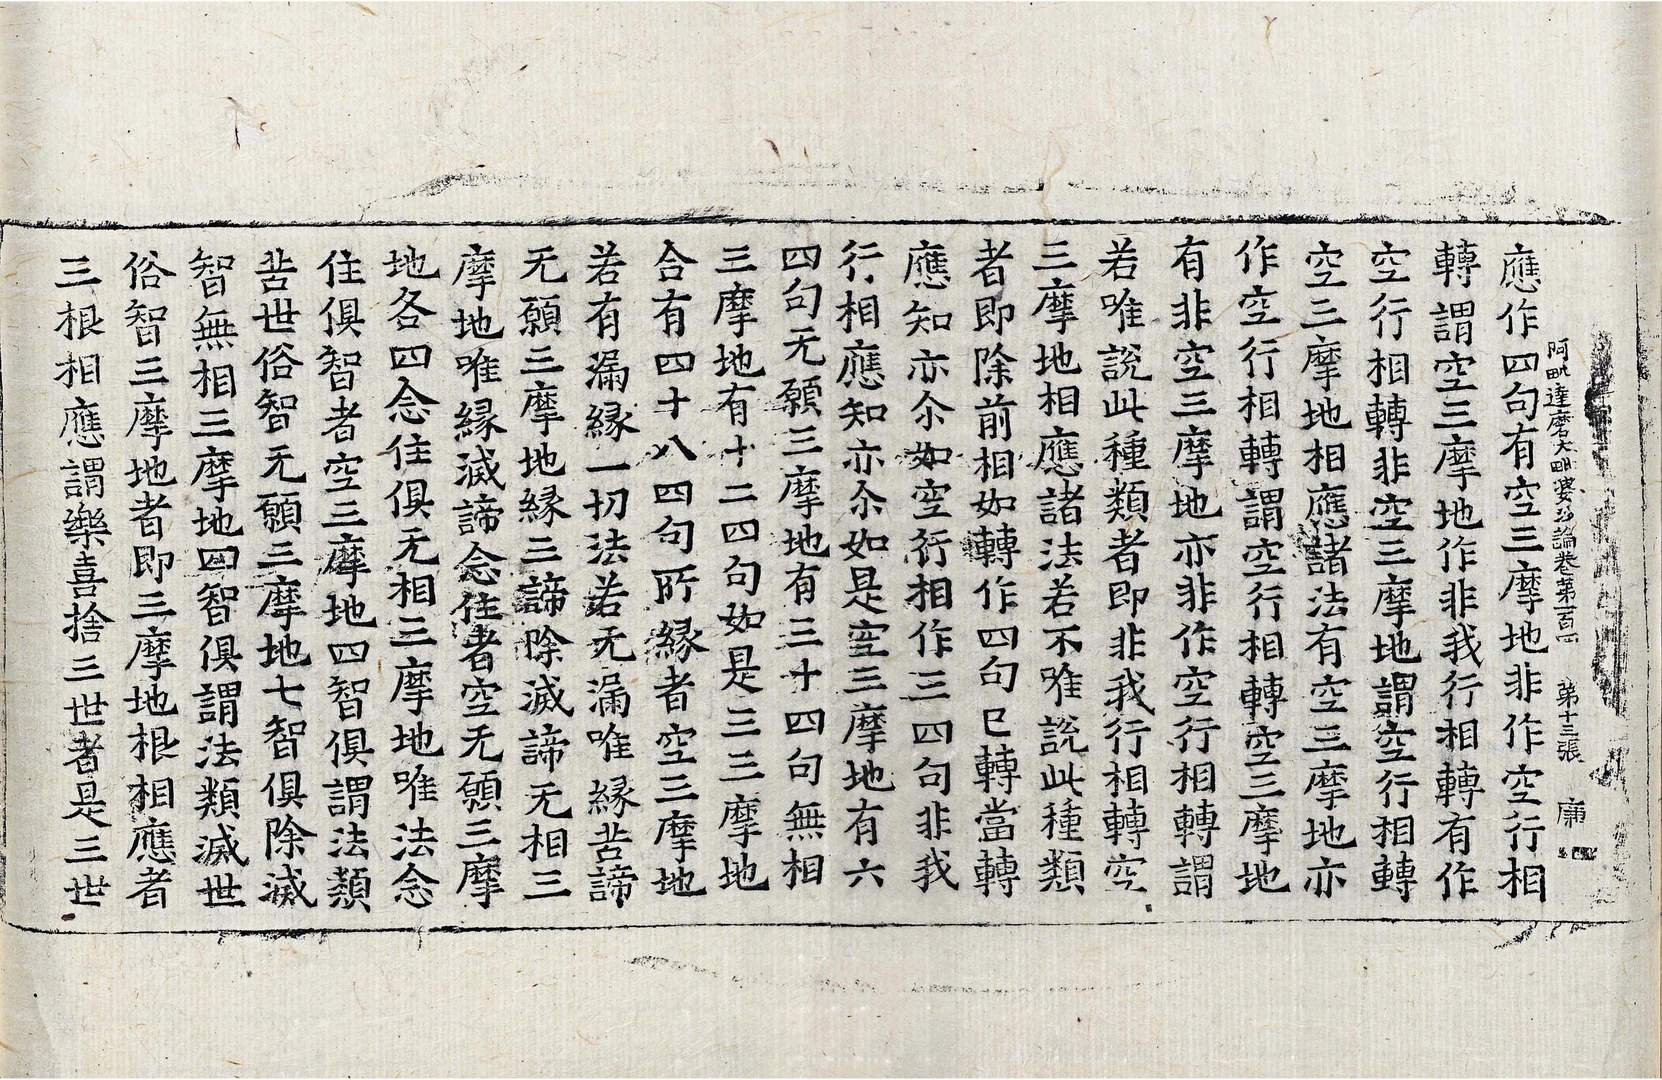 阿毗達磨大毗婆沙論卷第一百四 第十三張 廉
應作四句有空三摩地非作空行相
轉謂空三摩地作非我行相轉有作
空行相轉非空三摩地謂空行相轉
空三摩地相應諸法有空三摩地亦
作空行相轉謂空行相轉空三摩地
有非空三摩地亦非作空行相轉謂
若唯說此種類者即非我行相轉空
三摩地相應諸法若不唯說此種類
者即除前相如轉作四句已轉當轉
應知亦尒如空行相作三四句非我
行相應知亦尒如是空三摩地有六
四句无願三摩地有三十四句無相
三摩地有十二四句如是三三摩地
合有四十八四句所縁者空三摩地
若有漏縁一切法若无漏唯縁苦諦
无願三摩地縁三諦除滅諦无相三
摩地唯縁滅諦念住者空无願三摩
地各四念住俱无相三摩地唯法念
住俱智者空三摩地四智俱謂法類
苦世俗智无願三摩地七智俱除滅
智無相三摩地四智俱謂法類滅世
俗智三摩地者即三摩地根相應者
三根相應謂樂喜捨三世者是三世